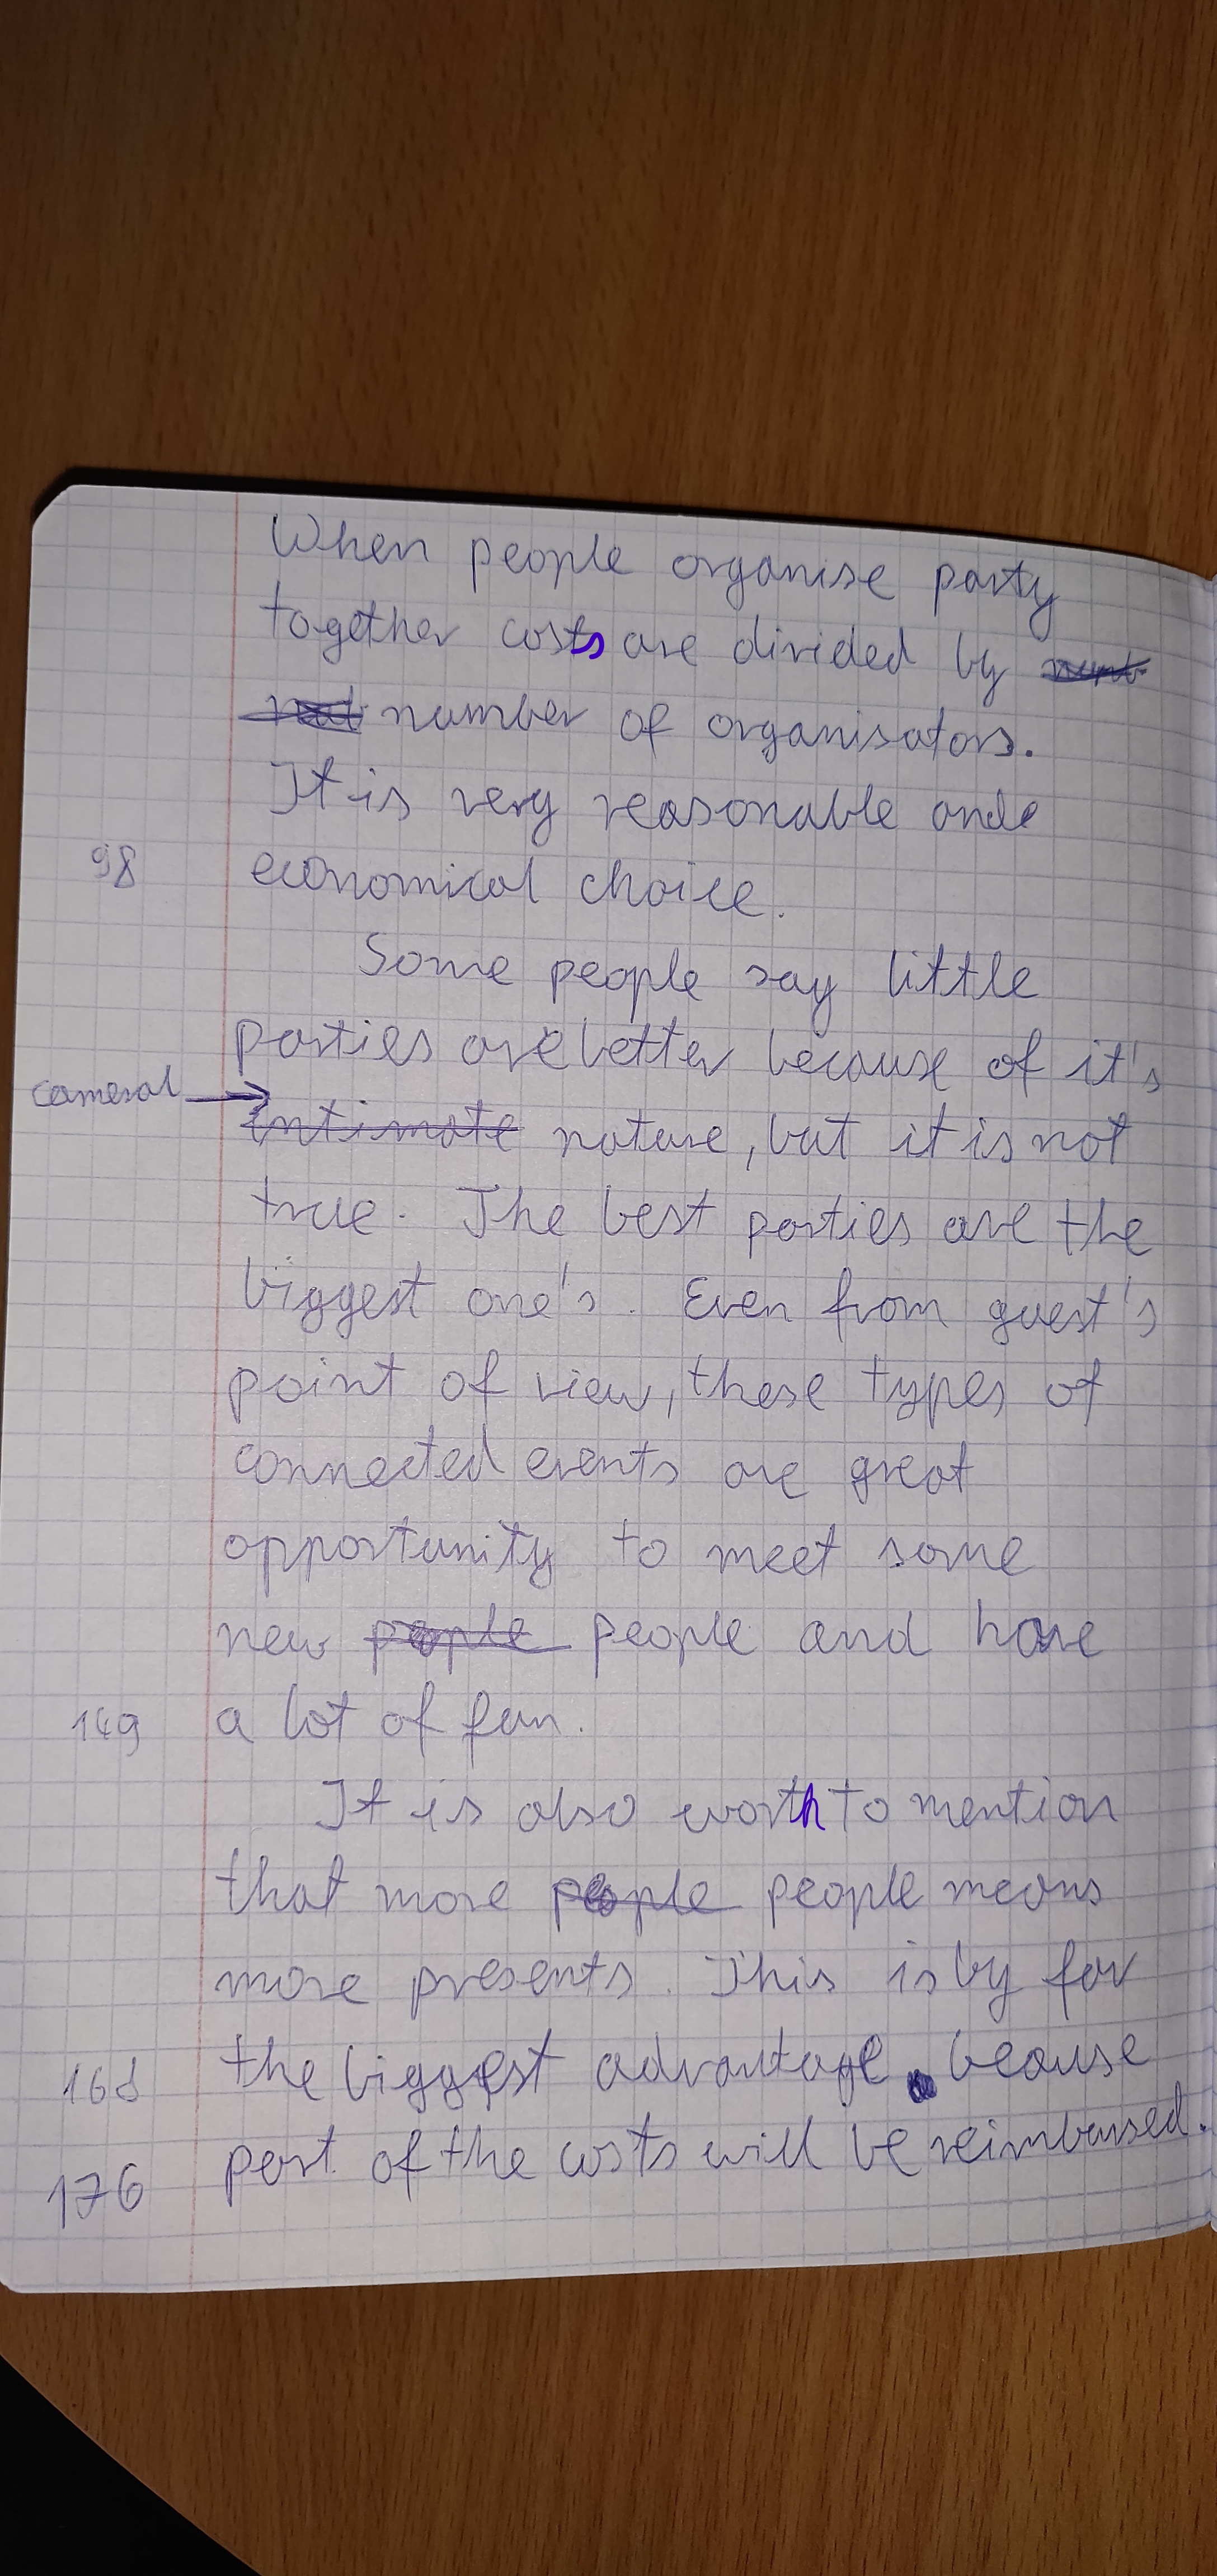 When people organise party
together costs are divided by
number of organisators.
It is very reasonable ande
98 economical choice.
Some people say little
parties are better because of it's
cameral → intimate nature, but it is not
true. The best parties are the
biggest one's. Even from guest's
point of view, these types of
connected events are great
opportunity to meet some
new people people and have
149 a lot of fun.
It is also worth to mention
that more people people means
more presents. This is by far
168 the biggest advantage because
176 part of the costs will be reimbursed.